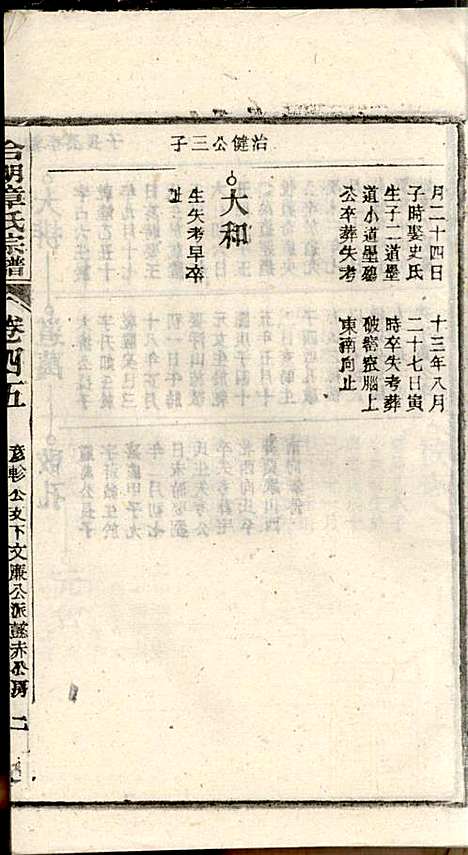 月二十四日
子時娶史氏
生子二道墨
道小道墨
公卒葬失考
十三年八月
二十七日寅
時卒失考葬
破窰窯腦上
東南向止
治健公三子
大和
生失考早卒
止
合湖章氏宗譜
卷四五
彦軫公支下文廉公派懿赤公房
二